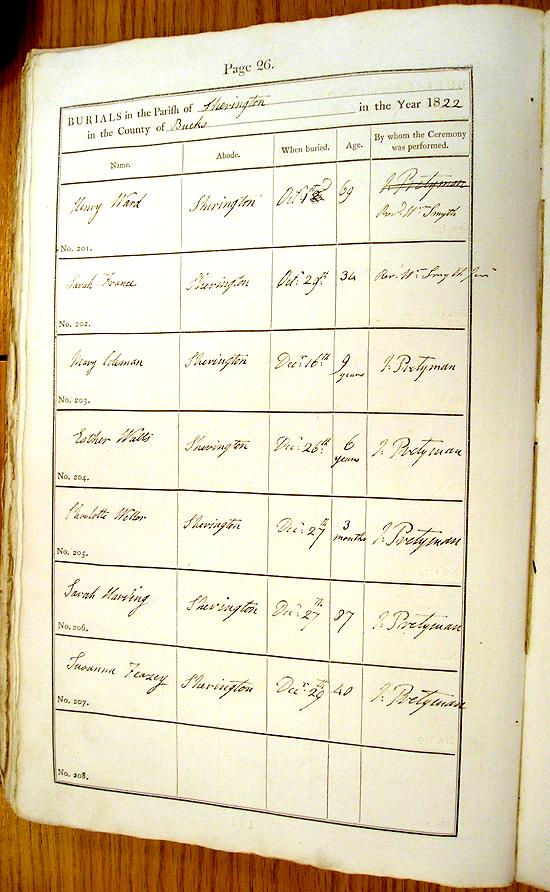 Page 26.
BURIALS in the Parish of Sherington
in the County of Bucks in the Year 1822
Name. Abode. When buried. Age. By whom the Ceremony was performed.
Henry Ward Sherington Octr 69 J. Pretyman
Revd Wm Smyth
No. 201.
Sarah France Sherington Oct: 29th 34 Rev. Wm Smyth Junr
No. 202.
Mary Coleman Sherington Decr 16th 9 years J. Pretyman
No. 203.
Esther Watts Sherington Decr 26th 6 years J. Pretyman
No. 204.
Charlotte Sherington Decr 27th 3 months J. Pretyman
No. 205.
Sarah Harding Sherington Decr 27th 87 J. Pretyman
No. 206.
Susanna Feazey Sherington Decr 29th 40 J. Pretyman
No. 207.
No. 208.